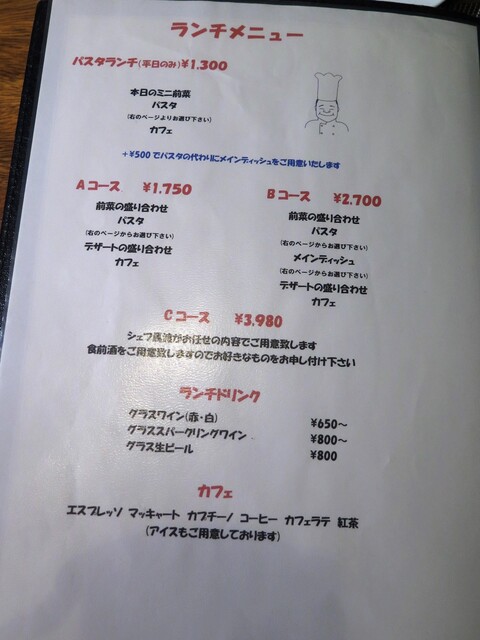 ランチメニュー
パスタランチ(平日のみ)¥1.300
本日のミニ前菜
パスタ
(右のページよりお選び下さい)
カフェ
+¥500でパスタの代わりにメインディッシュをご用意いたします
Aコース ¥1.750
前菜の盛り合わせ
パスタ
(右のページからお選び下さい)
デザートの盛り合わせ
カフェ
Bコース ¥2.700
前菜の盛り合わせ
パスタ
(右のページからお選び下さい)
メインディッシュ
(右のページからお選び下さい)
デザートの盛り合わせ
カフェ
Cコース ¥3,980
シェフ廣瀧がお任せの内容でご用意致します
食前酒をご用意致しますのでお好きなものをお申し付け下さい
ランチドリンク
グラスワイン(赤・白) ¥650~
グラススパークリングワイン ¥800~
グラス生ビール ¥800
カフェ
エスプレッソ マッキャート カプチーノ コーヒー カフェラテ 紅茶
(アイスもご用意しております)